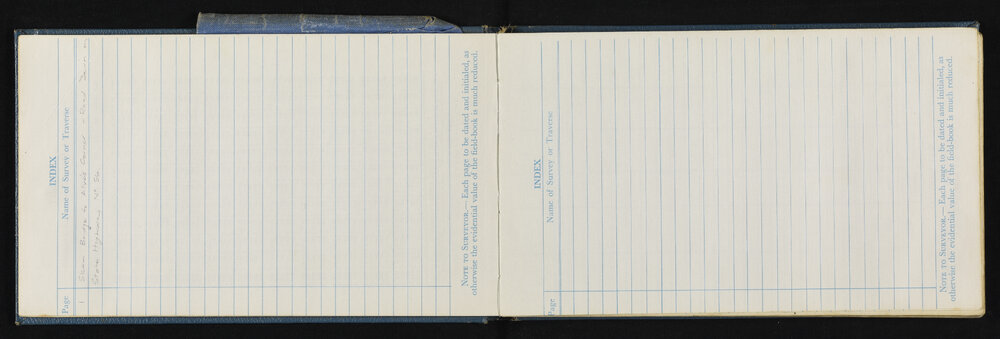 INDEX
Page Name of Survey or Traverse
1 Bridge to Corner - Road
State Highway No
NOTE TO SURVEYOR.— Each page to be dated and initialed, as
otherwise the evidential value of the field-book is much reduced.
INDEX
Page Name of Survey or Traverse
NOTE TO SURVEYOR.— Each page to be dated and initialed, as
otherwise the evidential value of the field-book is much reduced.